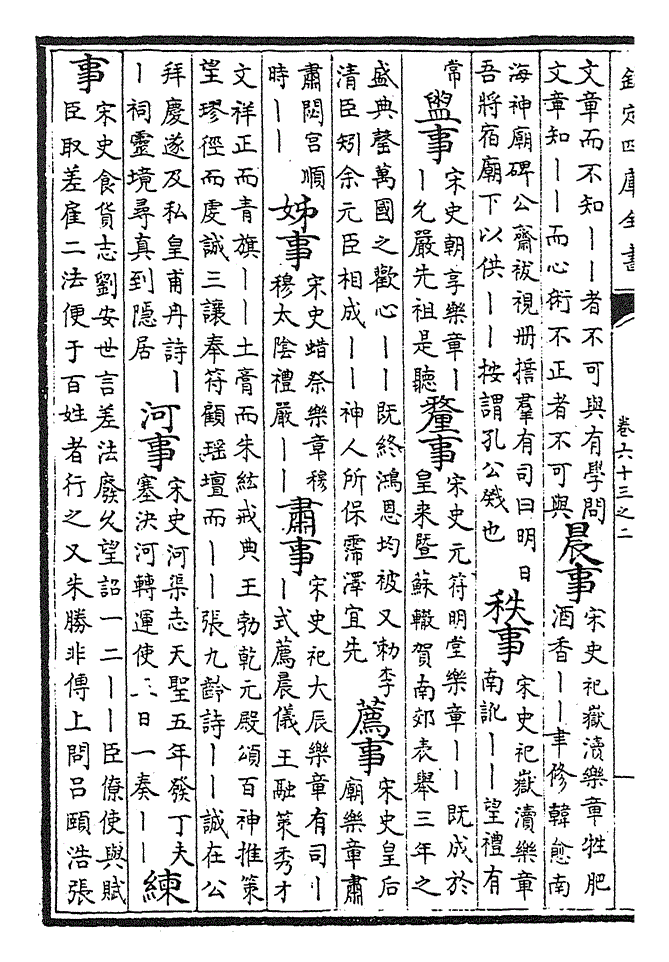 欽定四庫全書
卷六十三之二
文章而不知丨丨者不可與有學問
文章知丨丨而心術不正者不可與
晨事
宋史祀嶽瀆樂章牲肥
酒香丨丨聿修韓愈南
海神廟碑公齋祓視册誓羣有司曰明日
吾將宿廟下以供丨丨按謂孔公戣也
秩事
宋史祀嶽瀆樂章
南訛丨丨望禮有
常
盥事
宋史朝享樂章丨
丨允嚴先祖是聽
釐事
宋史元符明堂樂章丨丨既成於
皇来暨蘇轍賀南郊表舉三年之
盛典罄萬國之歡心丨丨既終鴻恩均被又勑李
清臣矧余元臣相成丨丨神人所保霈澤宜先
薦事
宋史皇后
廟樂章肅
肅閟宫順
時丨丨
姊事
宋史蜡祭樂章穆
穆太陰禮嚴丨丨
肅事
宋史祀大辰樂章有司丨
丨式薦晨儀王融策秀才
文祥正而青旗丨丨土膏而朱紘戒典王勃乾元殿頌百神推策
望璆徑而虔誠三讓奉符顧瑶壇而丨丨張九齡詩丨丨誠在公
拜慶遂及私皇甫丹詩丨
丨祠靈境尋真到隱居
河事
宋史河渠志天聖五年發丁夫
塞決河轉運使日一奏丨丨
練
事
宋史食貨志劉安世言差法廢久望詔一二丨丨臣僚使與賦
臣取差雇二法便于百姓者行之又朱勝非傳上問吕頤浩張